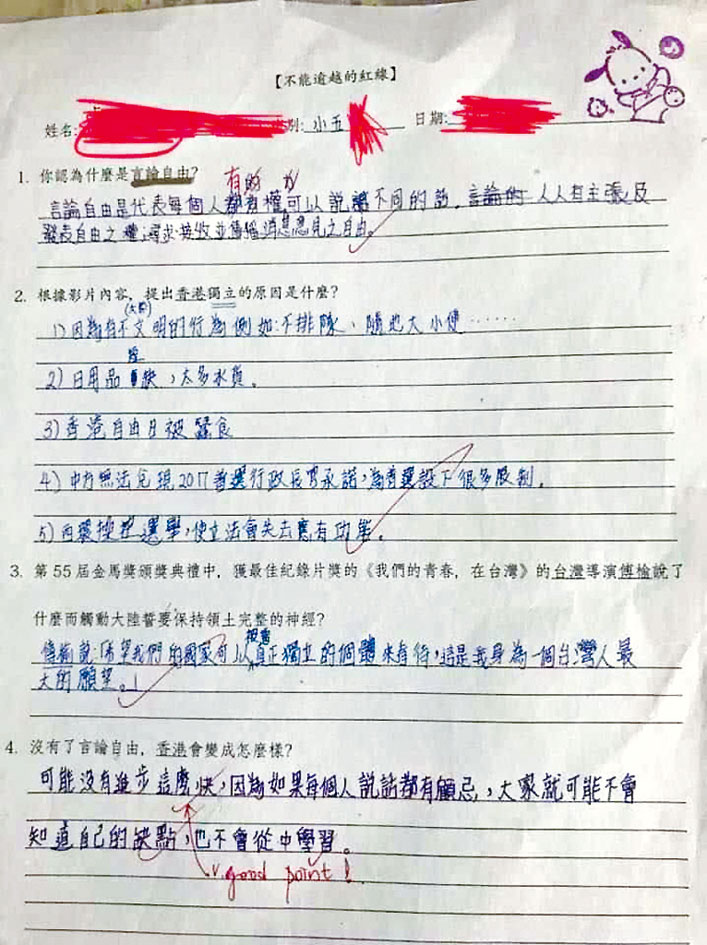 【不能逾越的紅線】
姓名: 別: 小五 日期:
1. 你認為什麼是言論自由?
有的
言論自由是代表每個人都有權可以說不同的話。言論的人人有主張及
發表自由之權;尋求、接收並傳播消息意見之自由。
2. 根據影片內容,提出香港獨立的原因是什麼?
(大陸)
1) 因為有不文明的行為例如:不排隊、隨地大小便……
短
2) 日用品缺,太多水貨。
3) 香港自由日被蠶食
4) 中方無法兌現2017普選行政長官承諾,為普選設下很多限制。
5) 西環操控選舉,使立法會失去應有功能。
3. 第55屆金馬獎頒獎典禮中,獲最佳紀錄片獎的《我們的青春,在台灣》的台灣導演傅榆說了
什麼而觸動大陸誓要保持領土完整的神經?
被當
傅榆說:「希望我們的國家可以真正獨立的個體來看待,這是我身為一個台灣人最
大的願望。」
4. 沒有了言論自由,香港會變成怎麼樣?
可能沒有進步這麼快,因為如果每個人說話都有顧忌,大家就可能不會
知道自己的缺點,也不會從中學習。
good point!